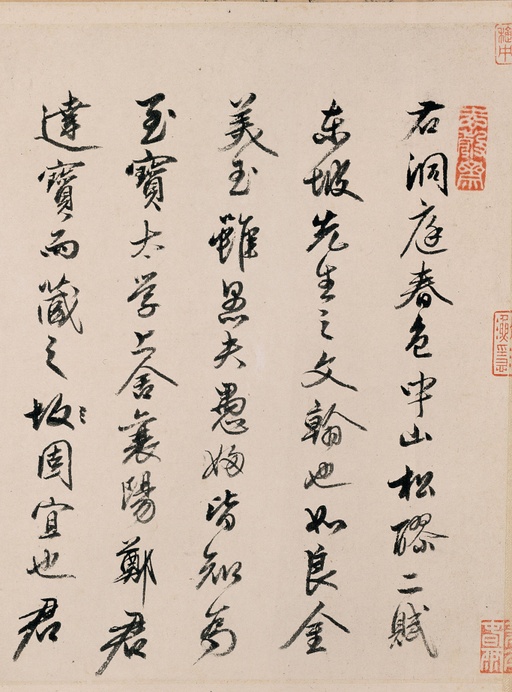 右洞庭春色中山松醪二賦
東坡先生之文翰也如良金
美玉雖愚夫愚婦皆知為
至寶太学上舍襄陽鄭君
達寶而藏之固宜也君